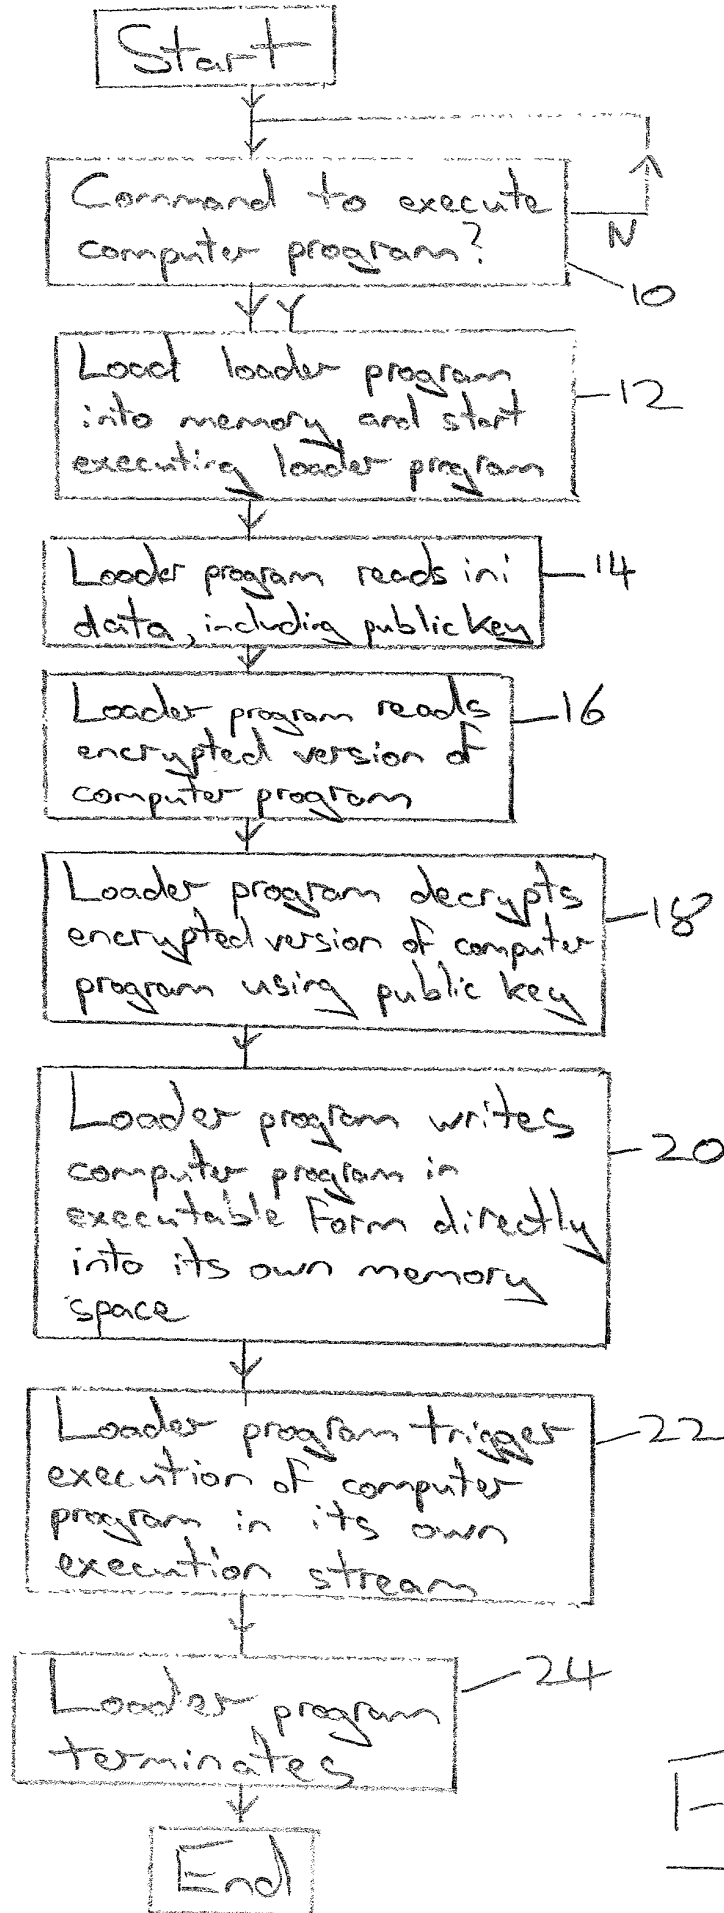 Start
Command to execute
computer program?
N
10
Y
Load loader program
into memory and start
executing loader program
12
Loader program reads ini
data, including public key
14
Loader program reads
encrypted version of
computer program
16
Loader program decrypts
encrypted version of computer
program using public key
18
Loader program writes
computer program in
executable form directly
into its own memory
space
20
Loader program trigger
execution of computer
program in its own
execution stream
22
Loader program
terminates
24
End